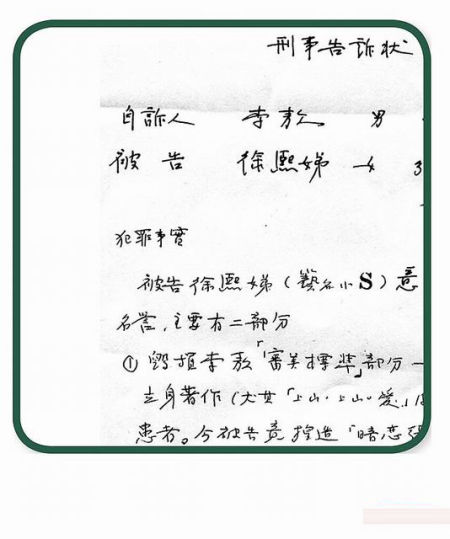 刑事告訴狀
自訴人 李敖 男
被告 徐熙娣 女 3
犯罪事實
被告徐熙娣（藝名小S）意
名誉，主要有二部分
①毀損李敖「審美標準」部分一
立身著作（大女「上山·上山·愛」
患者。今被告竟捏造「暗恋